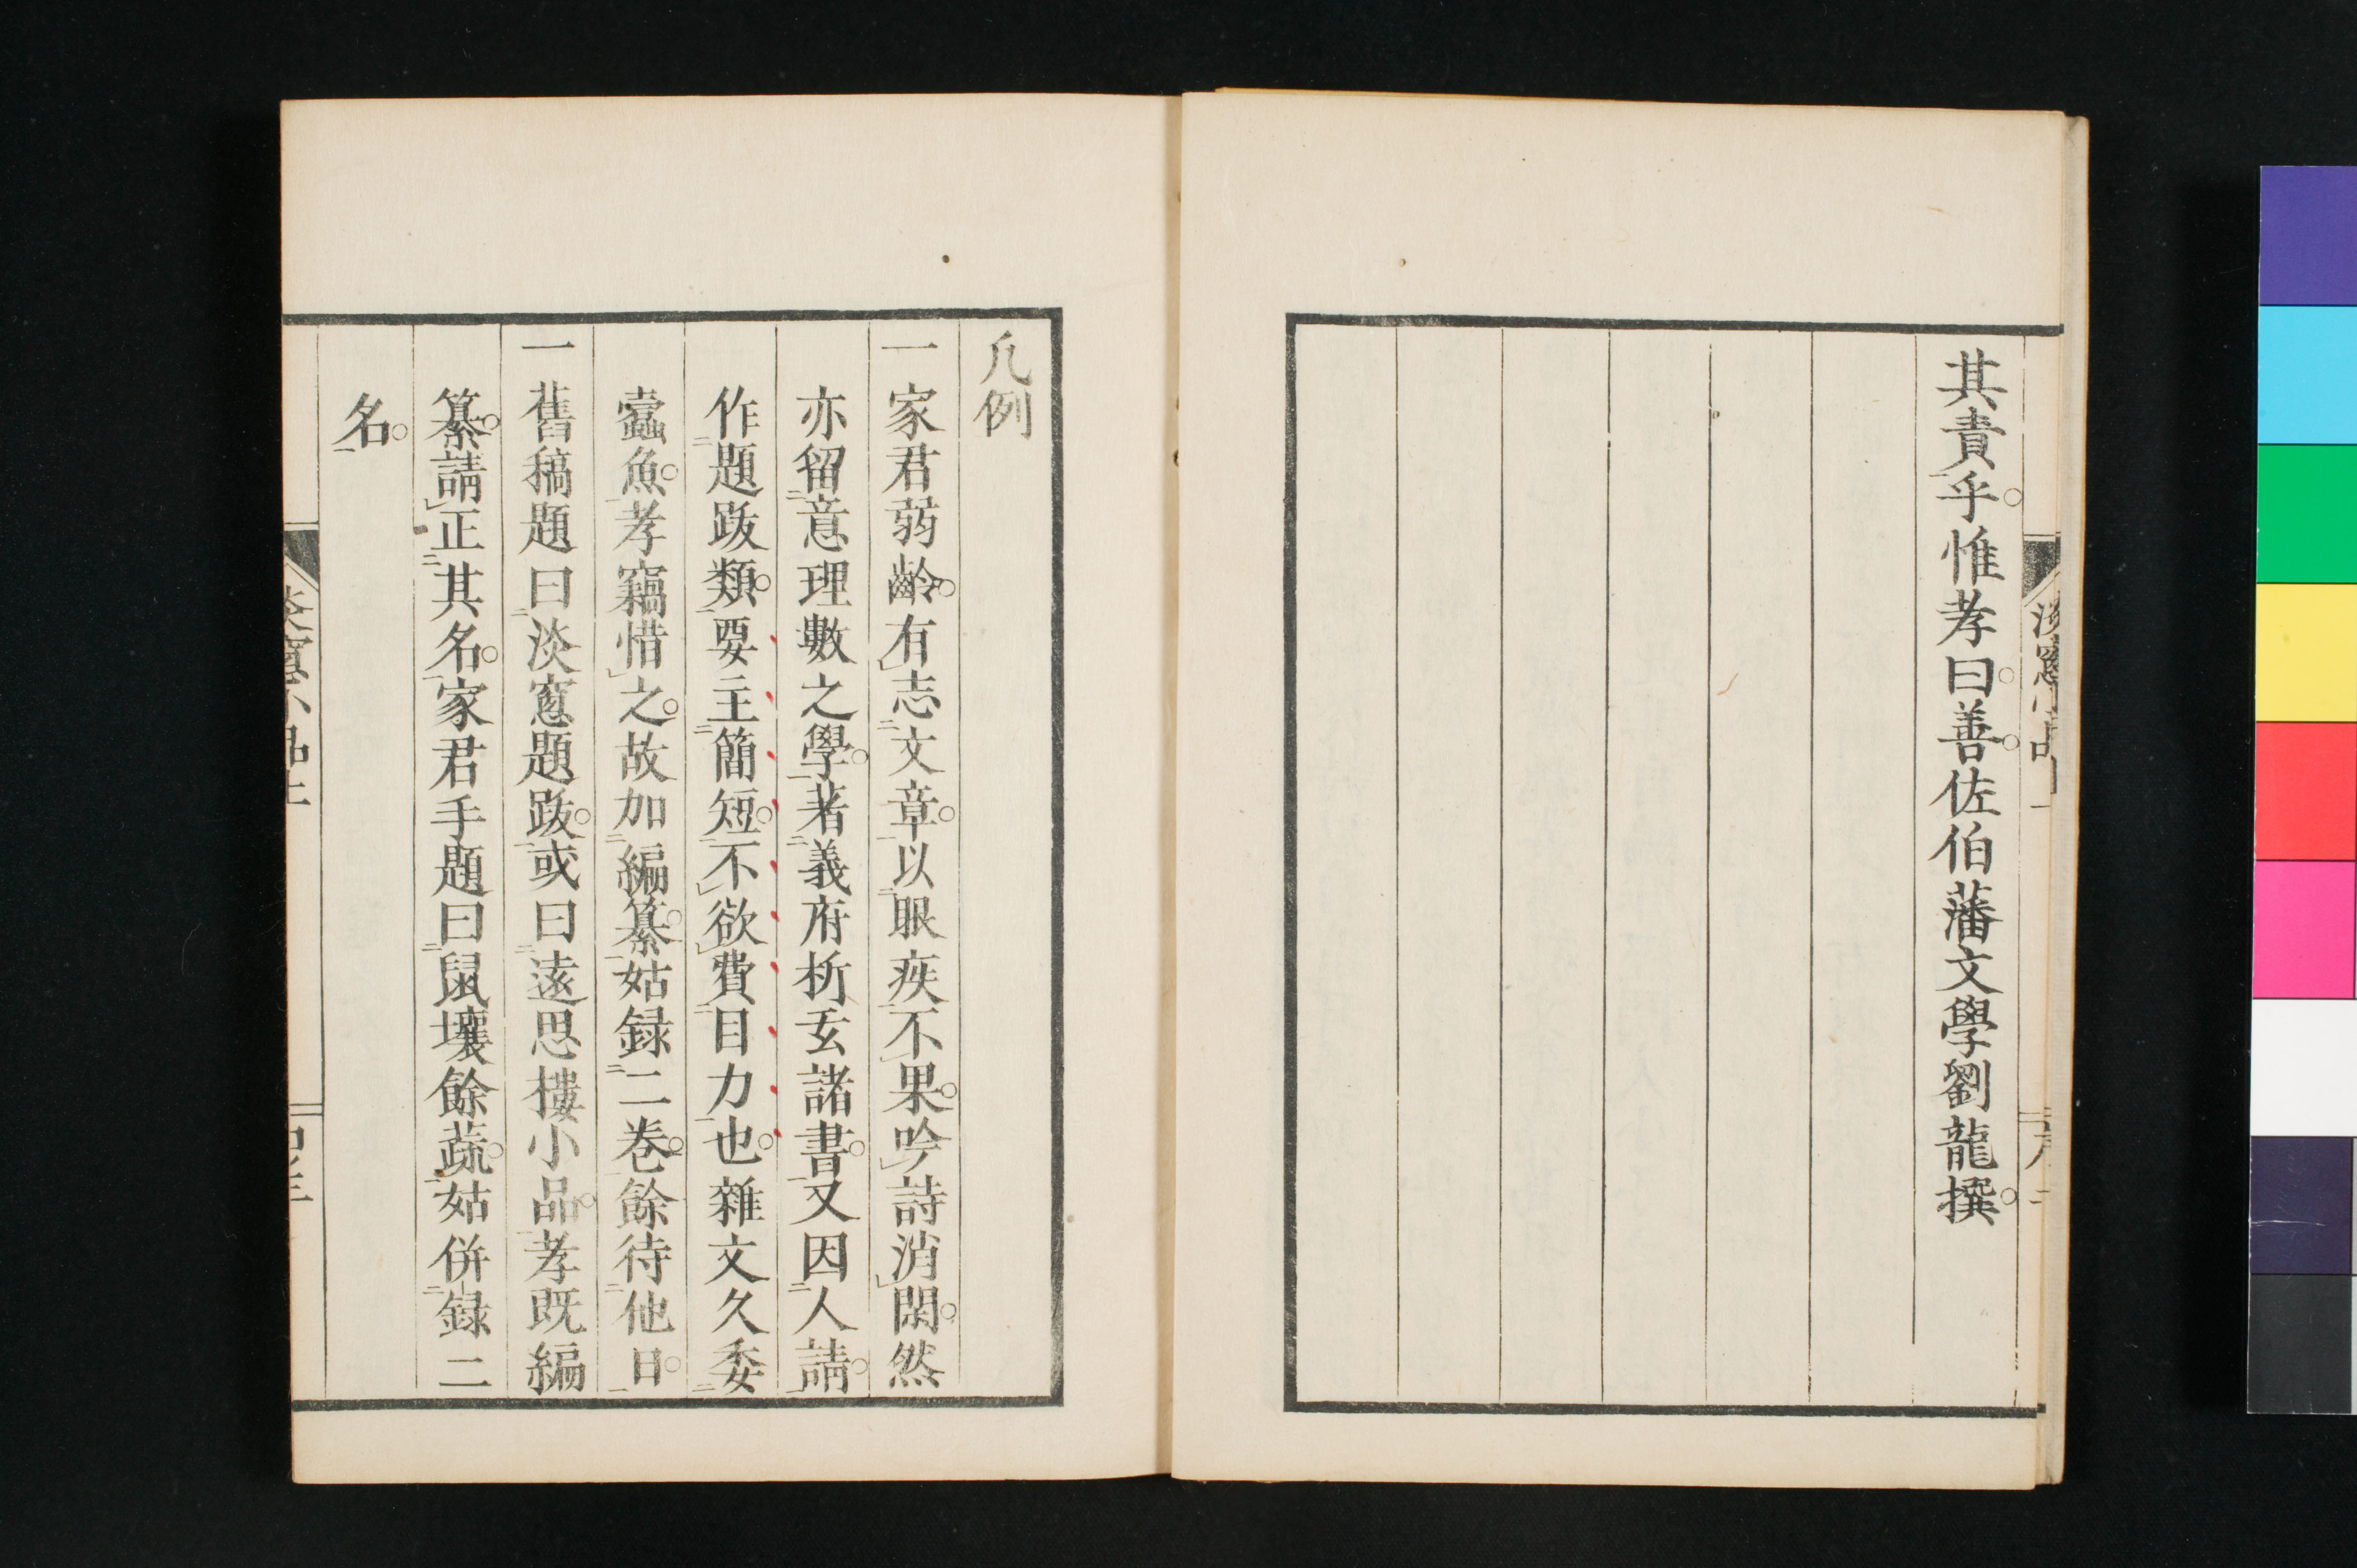 其責乎惟孝曰善佐伯藩文學劉龍撰
凡例
一家君弱齡有志文章以眼疾不果吟詩消閑然
亦留意理數之學著義府析玄諸書又因人請
作題跋類要主簡短不欲費目力也雜文久委
蠧魚孝竊惜之故加編纂姑録二卷餘待他日
一舊稿題曰淡窻題跋或曰遠思樓小品孝既編
纂請正其名家君手題曰鼠壤餘蔬姑併録二
名